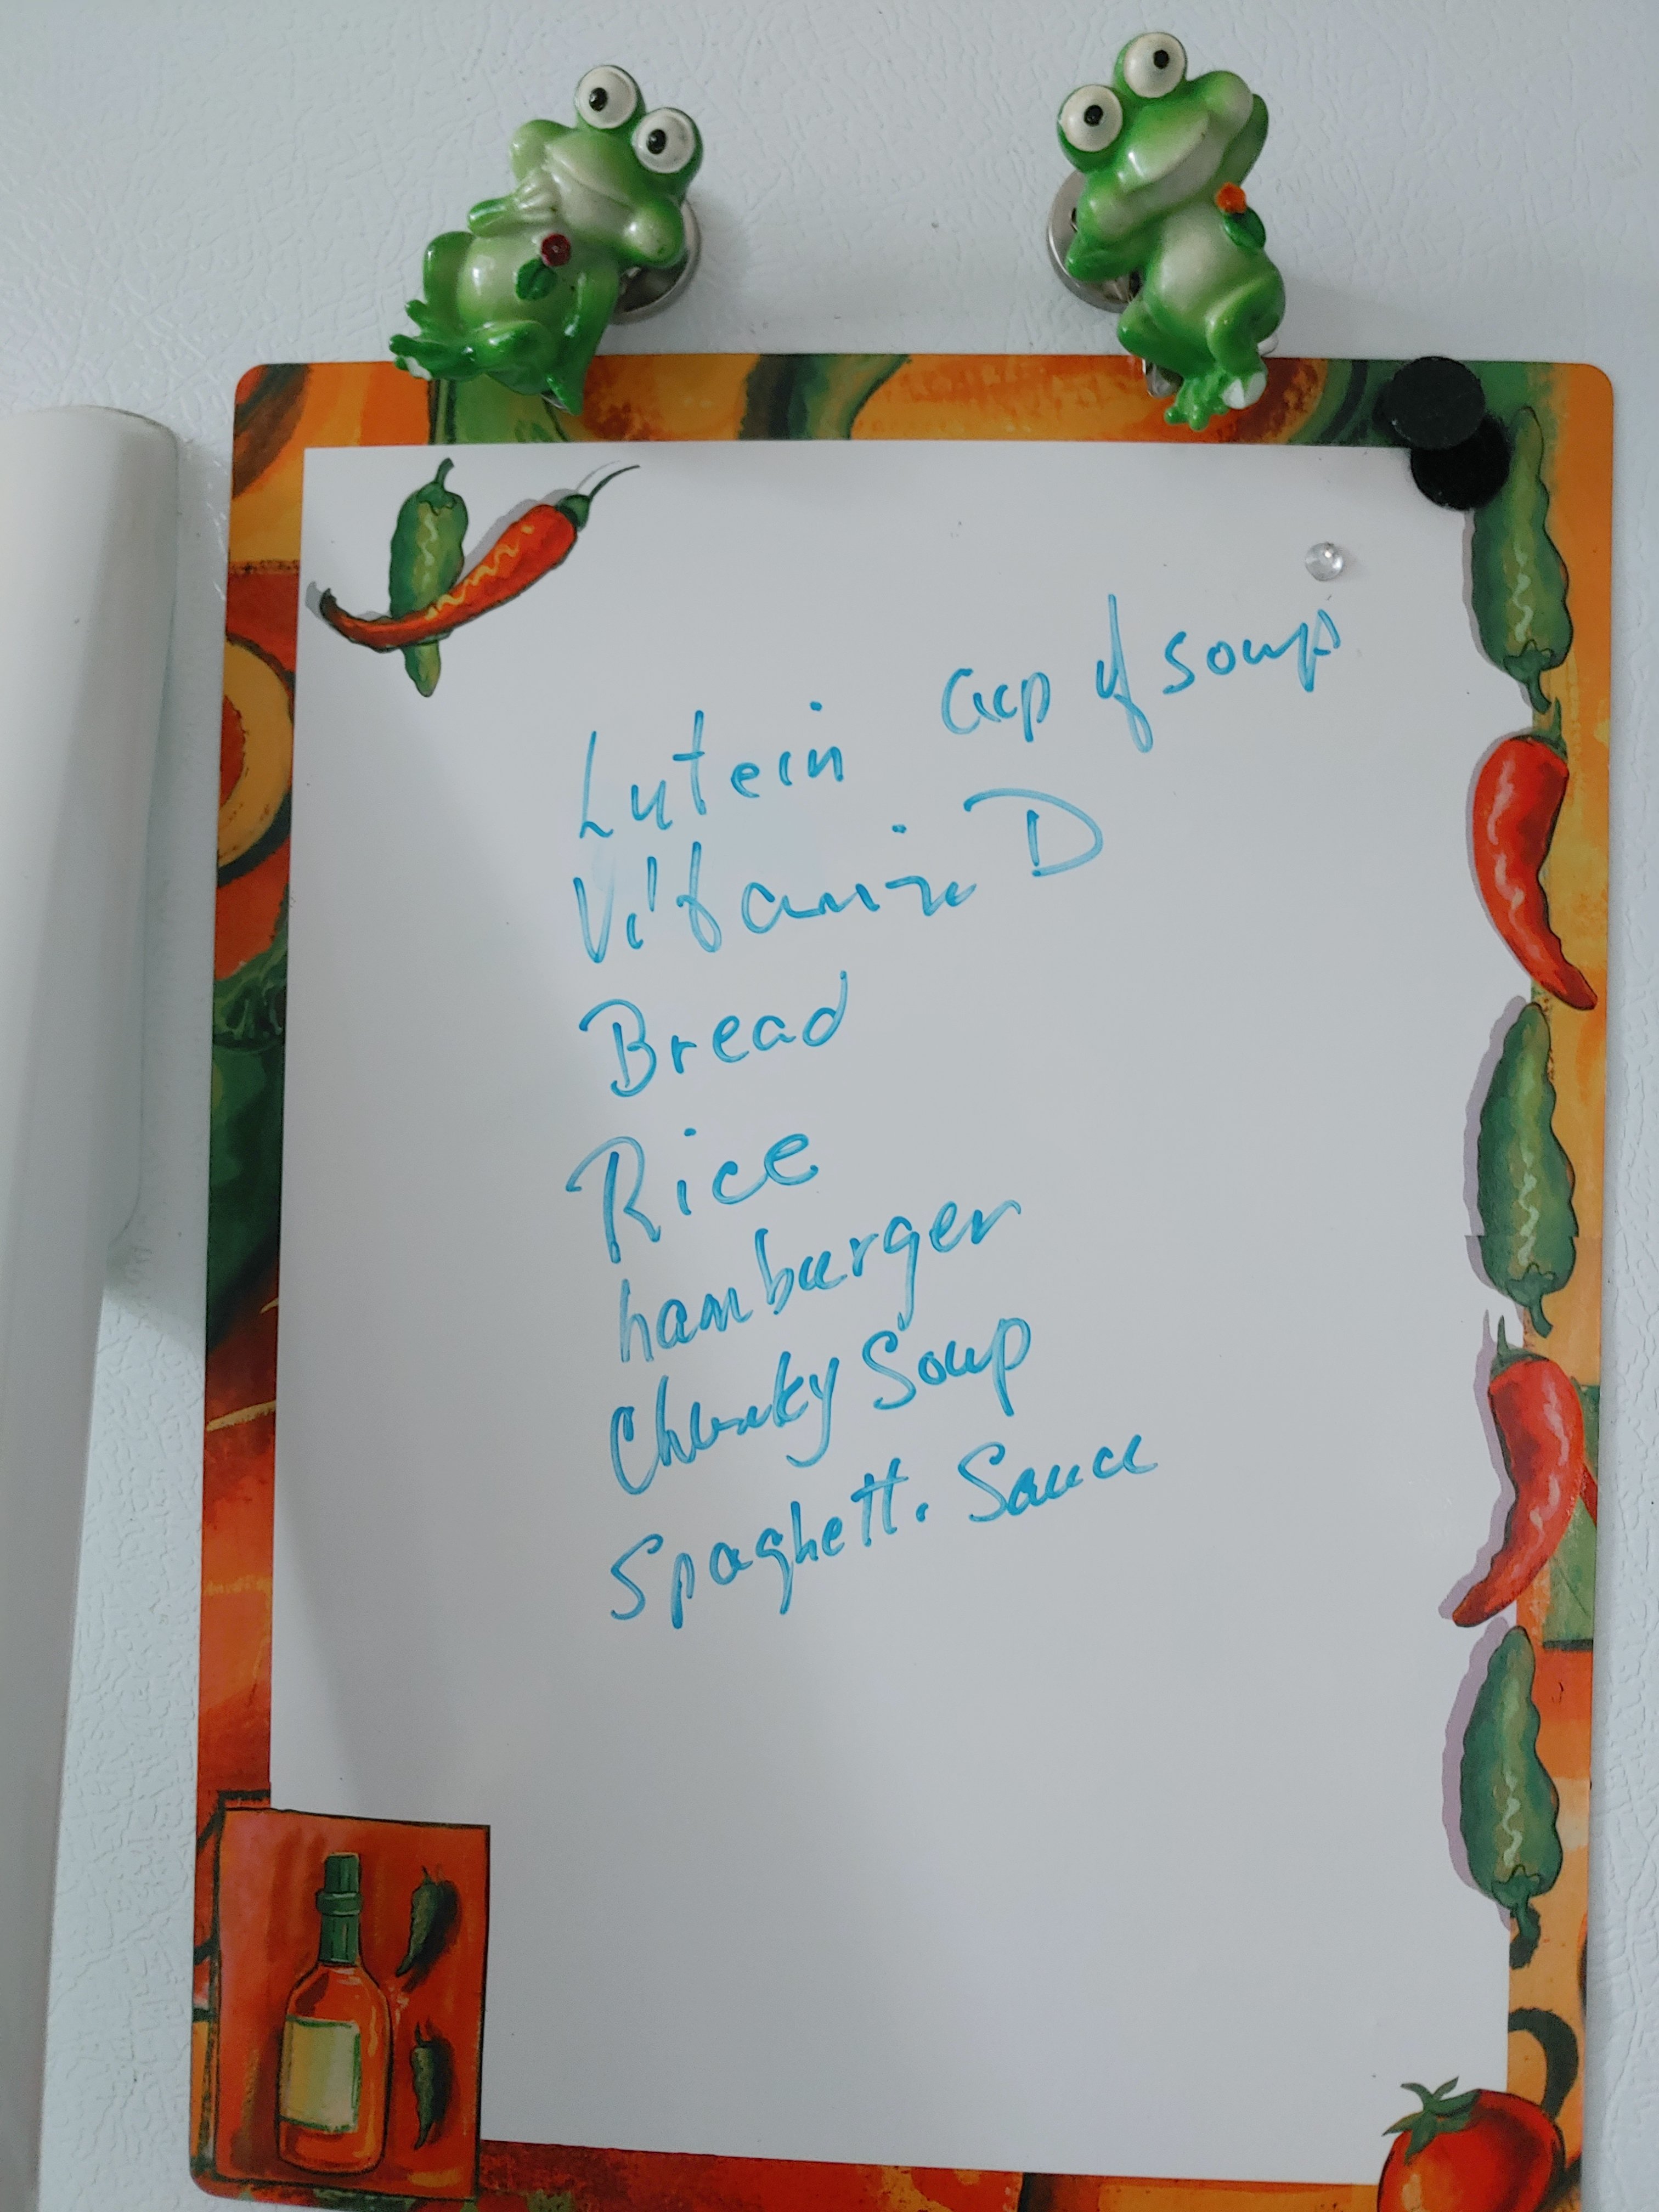 Lutein cup of soup
Vitamin D
Bread
Rice
hamburger
Chunky Soup
Spaghetti Sauce